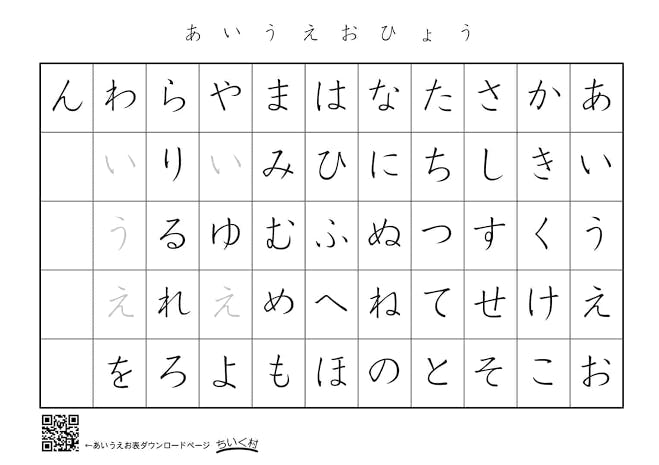 あいうえおひょう
んわらやまはなたさかあ
いりいみひにちしきい
うるゆむふぬつすくう
えれえめへねてせけえ
をろよもほのとそこお
←あいうえお表ダウンロードページ ちいく村